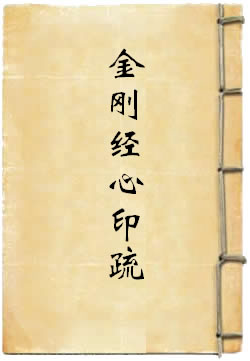 金刚经心印疏